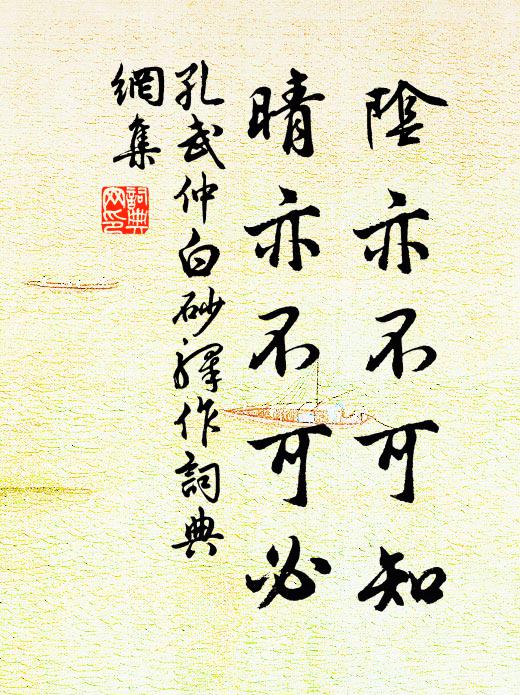 陰亦不可知
晴亦不可必
孔武仲白砂驛作詞典
網集
詞典網印